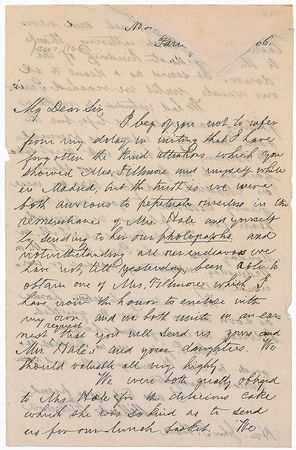 June 1866
My Dear Sir
I beg of you not to infer
from my delay in writing that I have
forgotten the kind attentions which you
showed Mrs. Fillmore and myself while
in Madrid, but the truth is we were
both anxious to perpetuate ourselves in the
remembrance of Mrs Hale and yourself
by sending to her our photographs, and
notwithstanding all our endeavors we
have not, till yesterday, been able to
obtain one of Mrs. Fillmore which I
have now the honor to enclose with
my own and we both unite in an ear-
nest request that you will send us yours and
Mrs Hale's and your daughters. We
should value them all very highly.
We were both greatly obliged
to Mrs. Hale for the delicious cake
which she was so kind as to send
us for our lunch basket. We